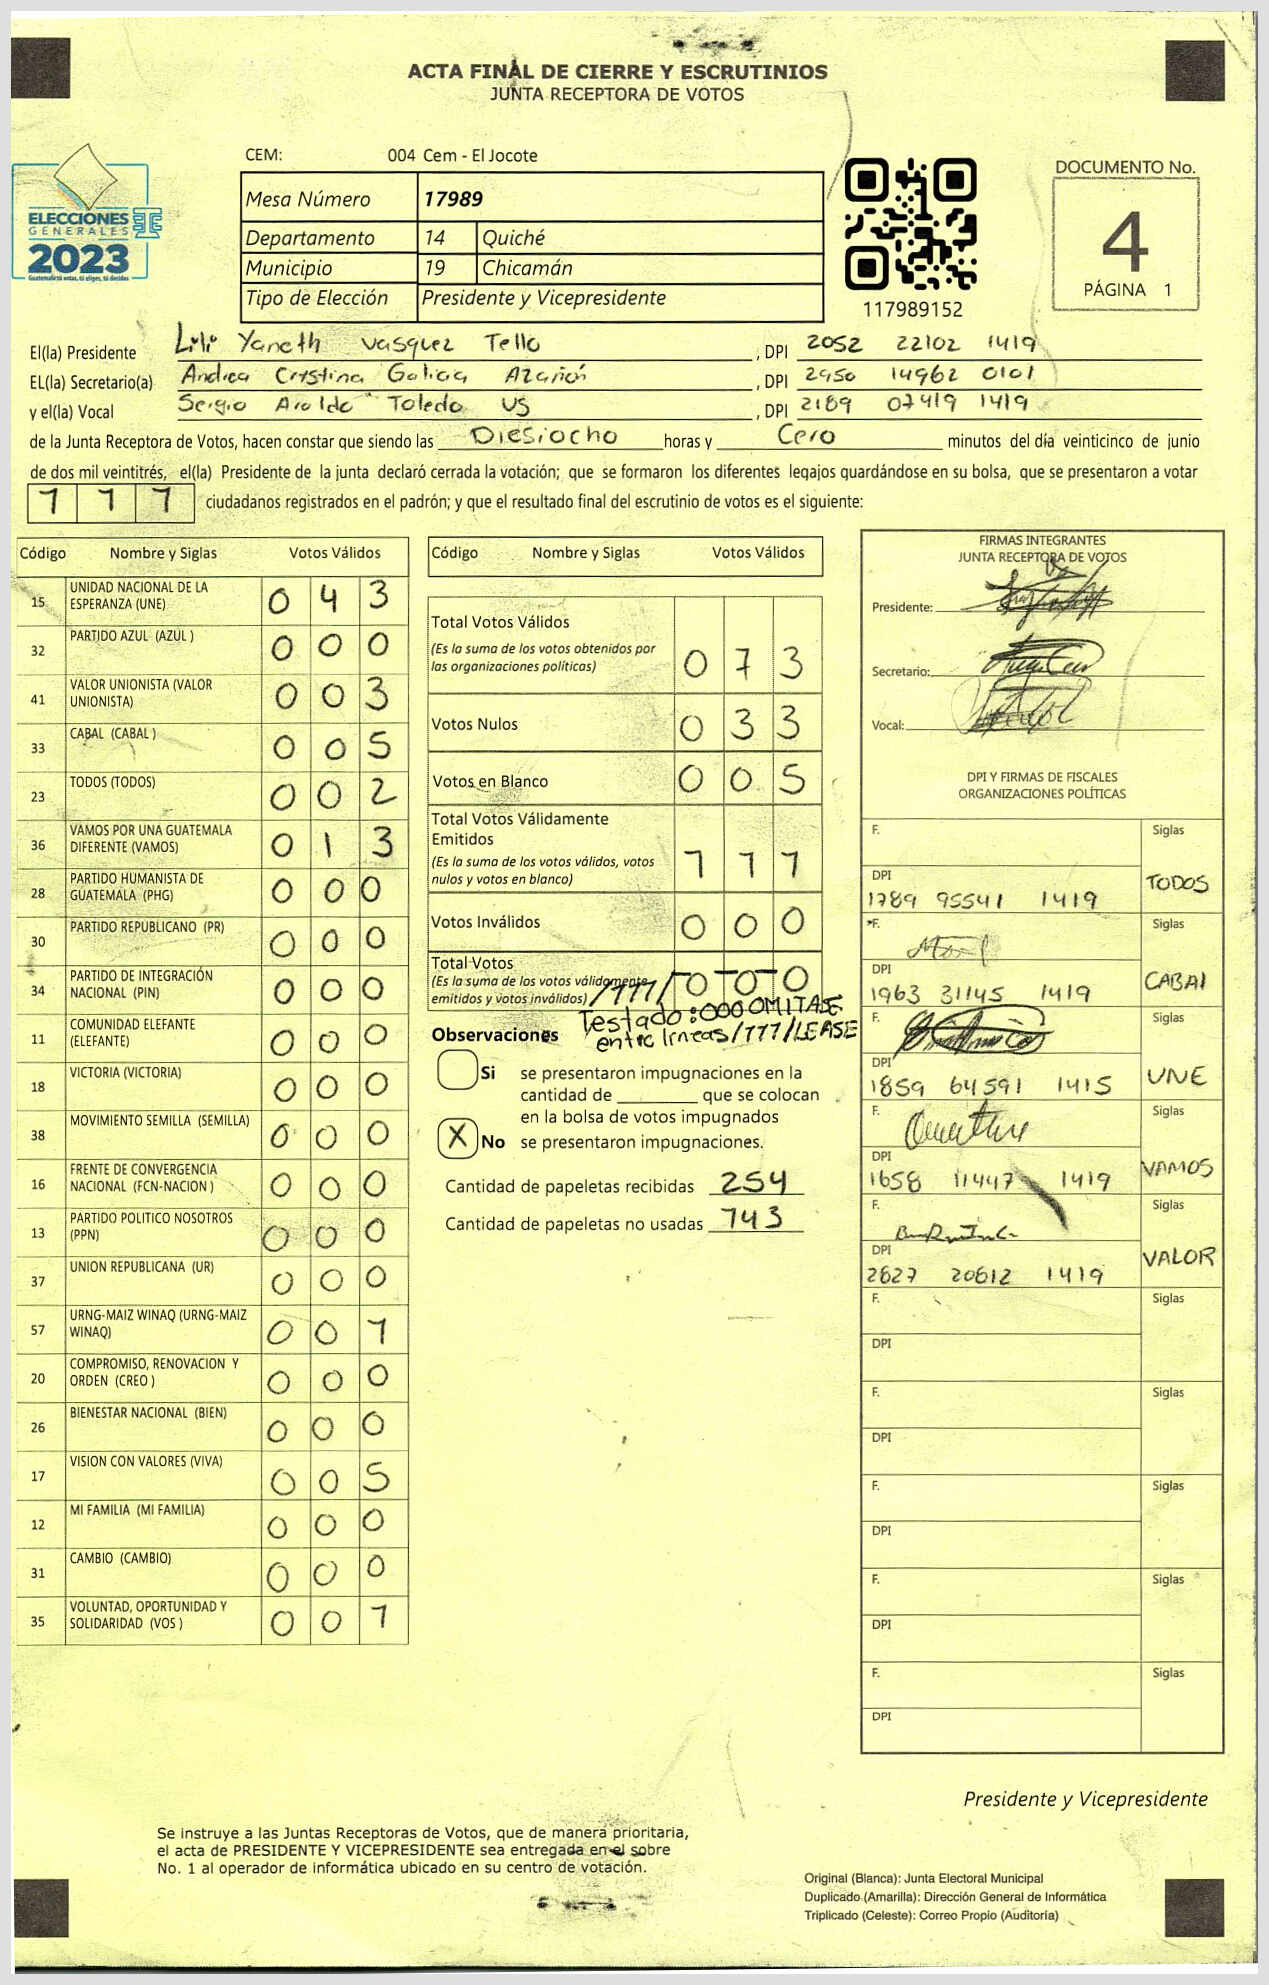 ACTA FINAL DE CIERRE Y ESCRUTINIOS
JUNTA RECEPTORA DE VOTOS
ELECCIONES
GENERALES
2023
CEM: 004 Cem - El Jocote
Mesa Número 17989
Departamento 14 Quiché
Municipio 19 Chicamán
Tipo de Elección Presidente y Vicepresidente
117989152
DOCUMENTO No.
4
PÁGINA 1
El(la) Presidente Lili Yaneth Vasquez Tello, DPI 2052 22102 1419
EL(la) Secretario(a) Andrea Crystina Galicia Azañón, DPI 2950 14962 0101
y el(la) Vocal Sergio Aroldo Toledo US, DPI 2189 07419 1419
de la Junta Receptora de Votos, hacen constar que siendo las Diesiocho horas y Cero minutos del día veinticinco de junio
de dos mil veintitrés, el(la) Presidente de la junta declaró cerrada la votación; que se formaron los diferentes legajos guardándose en su bolsa, que se presentaron a votar
1 1 1 ciudadanos registrados en el padrón; y que el resultado final del escrutinio de votos es el siguiente:
Código Nombre y Siglas Votos Válidos
15 UNIDAD NACIONAL DE LA ESPERANZA (UNE) 0 4 3
32 PARTIDO AZUL (AZUL ) 0 0 0
41 VALOR UNIONISTA (VALOR UNIONISTA) 0 0 3
33 CABAL (CABAL ) 0 0 5
23 TODOS (TODOS) 0 0 2
36 VAMOS POR UNA GUATEMALA DIFERENTE (VAMOS) 0 1 3
28 PARTIDO HUMANISTA DE GUATEMALA (PHG) 0 0 0
30 PARTIDO REPUBLICANO (PR) 0 0 0
34 PARTIDO DE INTEGRACIÓN NACIONAL (PIN) 0 0 0
11 COMUNIDAD ELEFANTE (ELEFANTE) 0 0 0
18 VICTORIA (VICTORIA) 0 0 0
38 MOVIMIENTO SEMILLA (SEMILLA) 0 0 0
16 FRENTE DE CONVERGENCIA NACIONAL (FCN-NACION ) 0 0 0
13 PARTIDO POLITICO NOSOTROS (PPN) 0 0 0
37 UNION REPUBLICANA (UR) 0 0 0
57 URNG-MAIZ WINAQ (URNG-MAIZ WINAQ) 0 0 1
20 COMPROMISO, RENOVACION Y ORDEN (CREO ) 0 0 0
26 BIENESTAR NACIONAL (BIEN) 0 0 0
17 VISION CON VALORES (VIVA) 0 0 5
12 MI FAMILIA (MI FAMILIA) 0 0 0
31 CAMBIO (CAMBIO) 0 0 0
35 VOLUNTAD, OPORTUNIDAD Y SOLIDARIDAD (VOS ) 0 0 1
Código Nombre y Siglas Votos Válidos
Total Votos Válidos
(Es la suma de los votos obtenidos por
las organizaciones políticas) 0 7 3
Votos Nulos 0 3 3
Votos en Blanco 0 0 5
Total Votos Válidamente
Emitidos
(Es la suma de los votos válidos, votos
nulos y votos en blanco) 1 1 1
Votos Inválidos 0 0 0
Total Votos
(Es la suma de los votos válidamente
emitidos y votos inválidos) /111/ 0 0 0
Testado: 000 OMITASE
entre lineas /111/ LEASE
Observaciones
Si se presentaron impugnaciones en la
cantidad de ________ que se colocan
en la bolsa de votos impugnados
X No se presentaron impugnaciones.
Cantidad de papeletas recibidas 254
Cantidad de papeletas no usadas 143
FIRMAS INTEGRANTES
JUNTA RECEPTORA DE VOTOS
Presidente:
Secretario:
Vocal:
DPI Y FIRMAS DE FISCALES
ORGANIZACIONES POLÍTICAS
F. Siglas
DPI TODOS
1789 95541 1419
F. Siglas
DPI CABAl
1963 31145 1419
F. Siglas
DPI UNE
1859 64591 1415
F. Siglas
DPI VAMOS
1658 11447 1419
F. Siglas
DPI VALOR
2627 20612 1419
F. Siglas
DPI
F. Siglas
DPI
F. Siglas
DPI
F. Siglas
DPI
F. Siglas
DPI
Presidente y Vicepresidente
Se instruye a las Juntas Receptoras de Votos, que de manera prioritaria,
el acta de PRESIDENTE Y VICEPRESIDENTE sea entregada en el sobre
No. 1 al operador de informática ubicado en su centro de votación.
Original (Blanca): Junta Electoral Municipal
Duplicado (Amarilla): Dirección General de Informática
Triplicado (Celeste): Correo Propio (Auditoría)